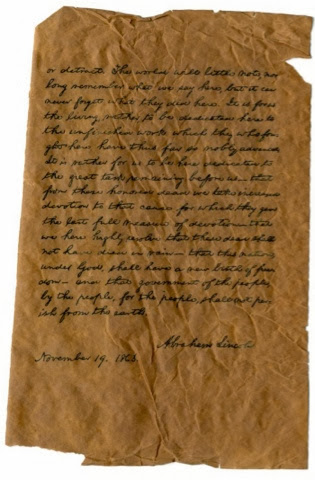 or detract. The world will little note, nor
long remember what we say here, but it can
never forget what they did here. It is for us
the living, rather, to be dedicated here to
the unfinished work which they who fou-
ght here have thus far so nobly advanced.
It is rather for us to be here dedicated to
the great task remaining before us— that
from these honored dead we take increased
devotion to that cause for which they gave
the last full measure of devotion— that
we here highly resolve that these dead shall
not have died in vain— that this nation,
under God, shall have a new birth of free
dom— and that government of the people,
by the people, for the people, shall not per
ish from the earth.
Abraham Lincoln
November 19. 1863.